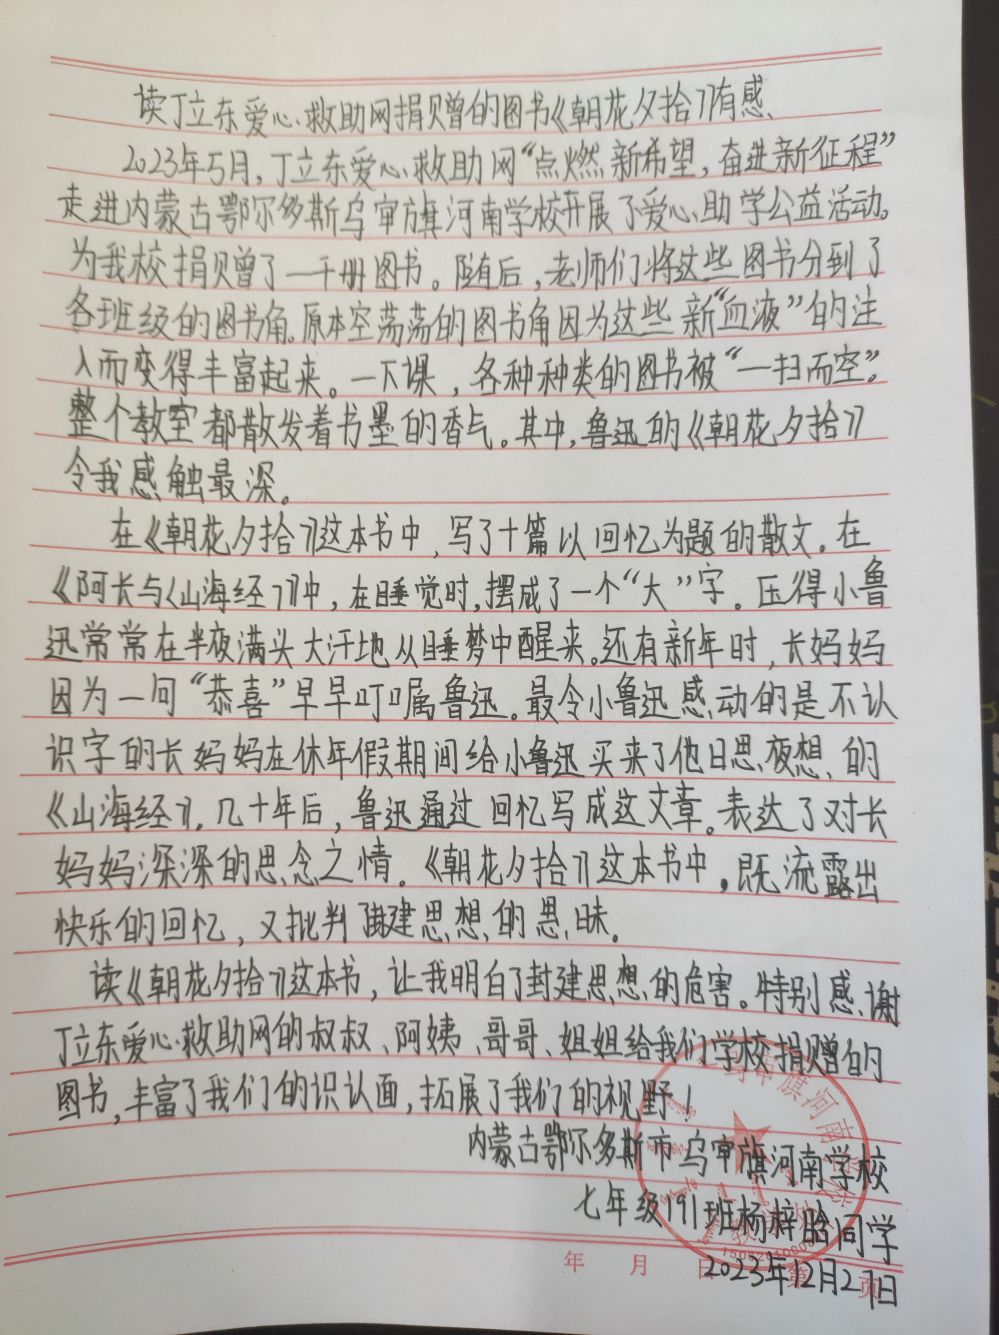 读丁立东爱心救助网捐赠的图书《朝花夕拾》有感
2023年5月，丁立东爱心救助网“点燃新希望，奋进新征程”
走进内蒙古鄂尔多斯乌审旗河南学校开展了爱心助学公益活动。
为我校捐赠了一千册图书。随后，老师们将这些图书分到了
各班级的图书角。原本空荡荡的图书角因为这些新“血液”的注
入而变得丰富起来。一下课，各种种类的图书被“一扫而空”。
整个教室都散发着书墨的香气。其中，鲁迅的《朝花夕拾》
令我感触最深。
在《朝花夕拾》这本书中，写了十篇以回忆为题的散文。在
《阿长与〈山海经〉》中，在睡觉时，摆成了一个“大”字。压得小鲁
迅常常在半夜满头大汗地从睡梦中醒来。还有新年时，长妈妈
因为一句“恭喜”早早叮嘱鲁迅。最令小鲁迅感动的是不认
识字的长妈妈在休年假期间给小鲁迅买来了他日思夜想的
《山海经》。几十年后，鲁迅通过回忆写成这文章。表达了对长
妈妈深深的思念之情。《朝花夕拾》这本书中，既流露出
快乐的回忆，又批判封建思想的愚昧。
读《朝花夕拾》这本书，让我明白了封建思想的危害。特别感谢
丁立东爱心救助网的叔叔、阿姨、哥哥、姐姐给我们学校捐赠的
图书，丰富了我们的识认面，拓展了我们的视野！
内蒙古鄂尔多斯市乌审旗河南学校
七年级191班杨梓晗同学
年 月 日 第 页
2023年12月27日
乌审旗河南学校